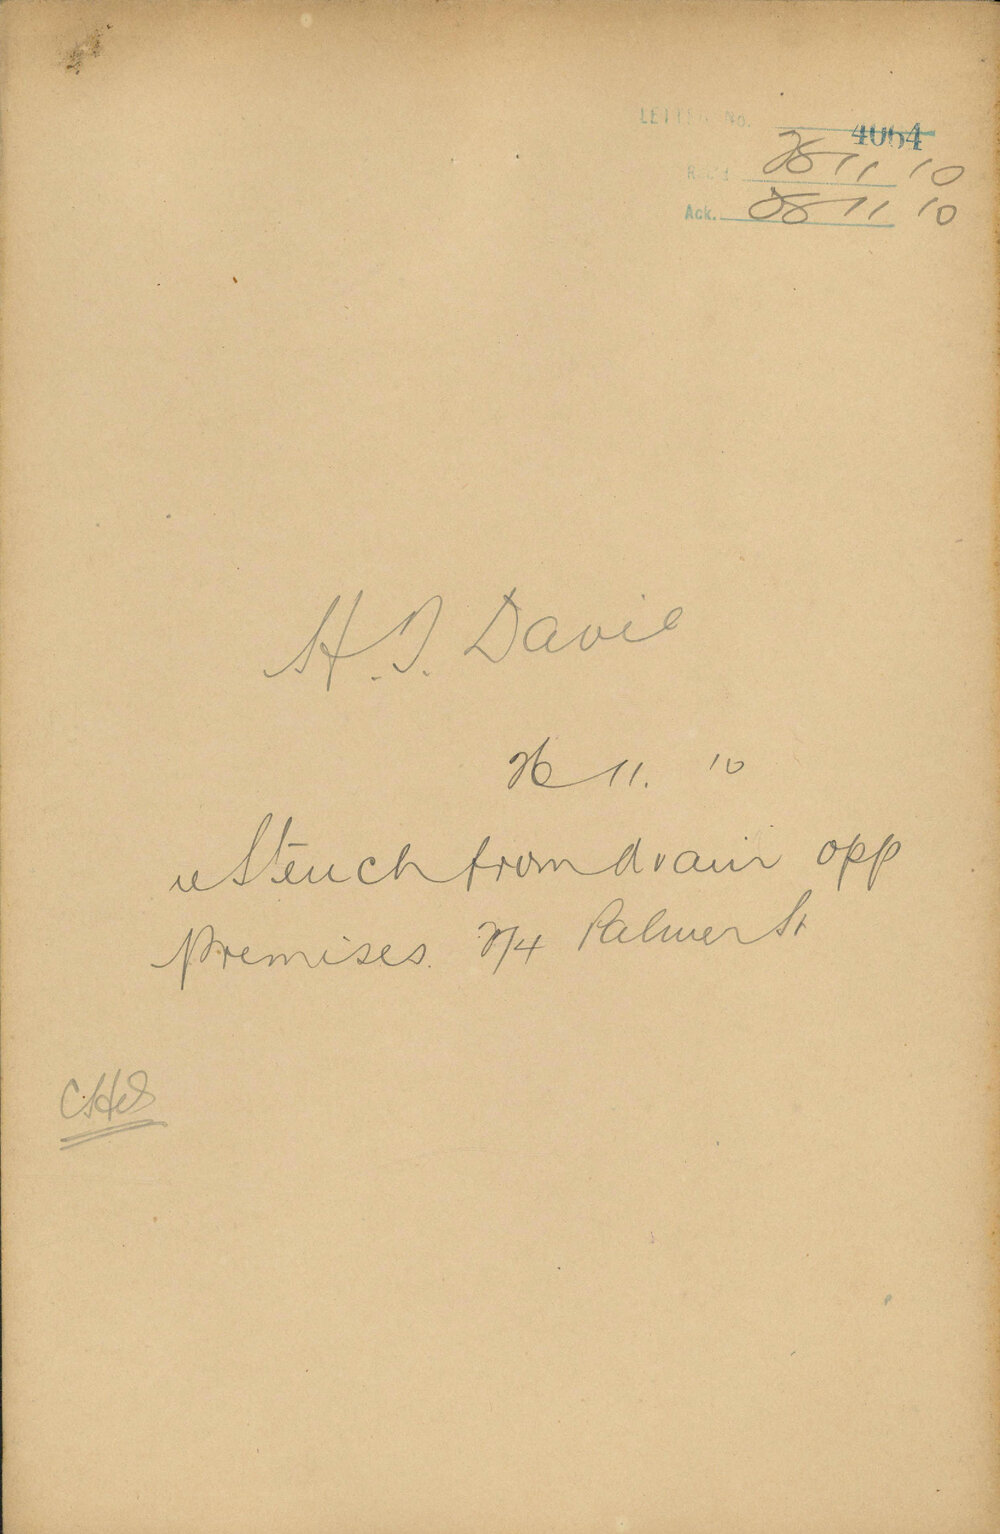 LETTER No. 4064
Rec'd 28 11 10
Ack. 28 11 10
H. J. Davie
26 11. 10
re Stench from drain opp
Premises. 274 Palmer St